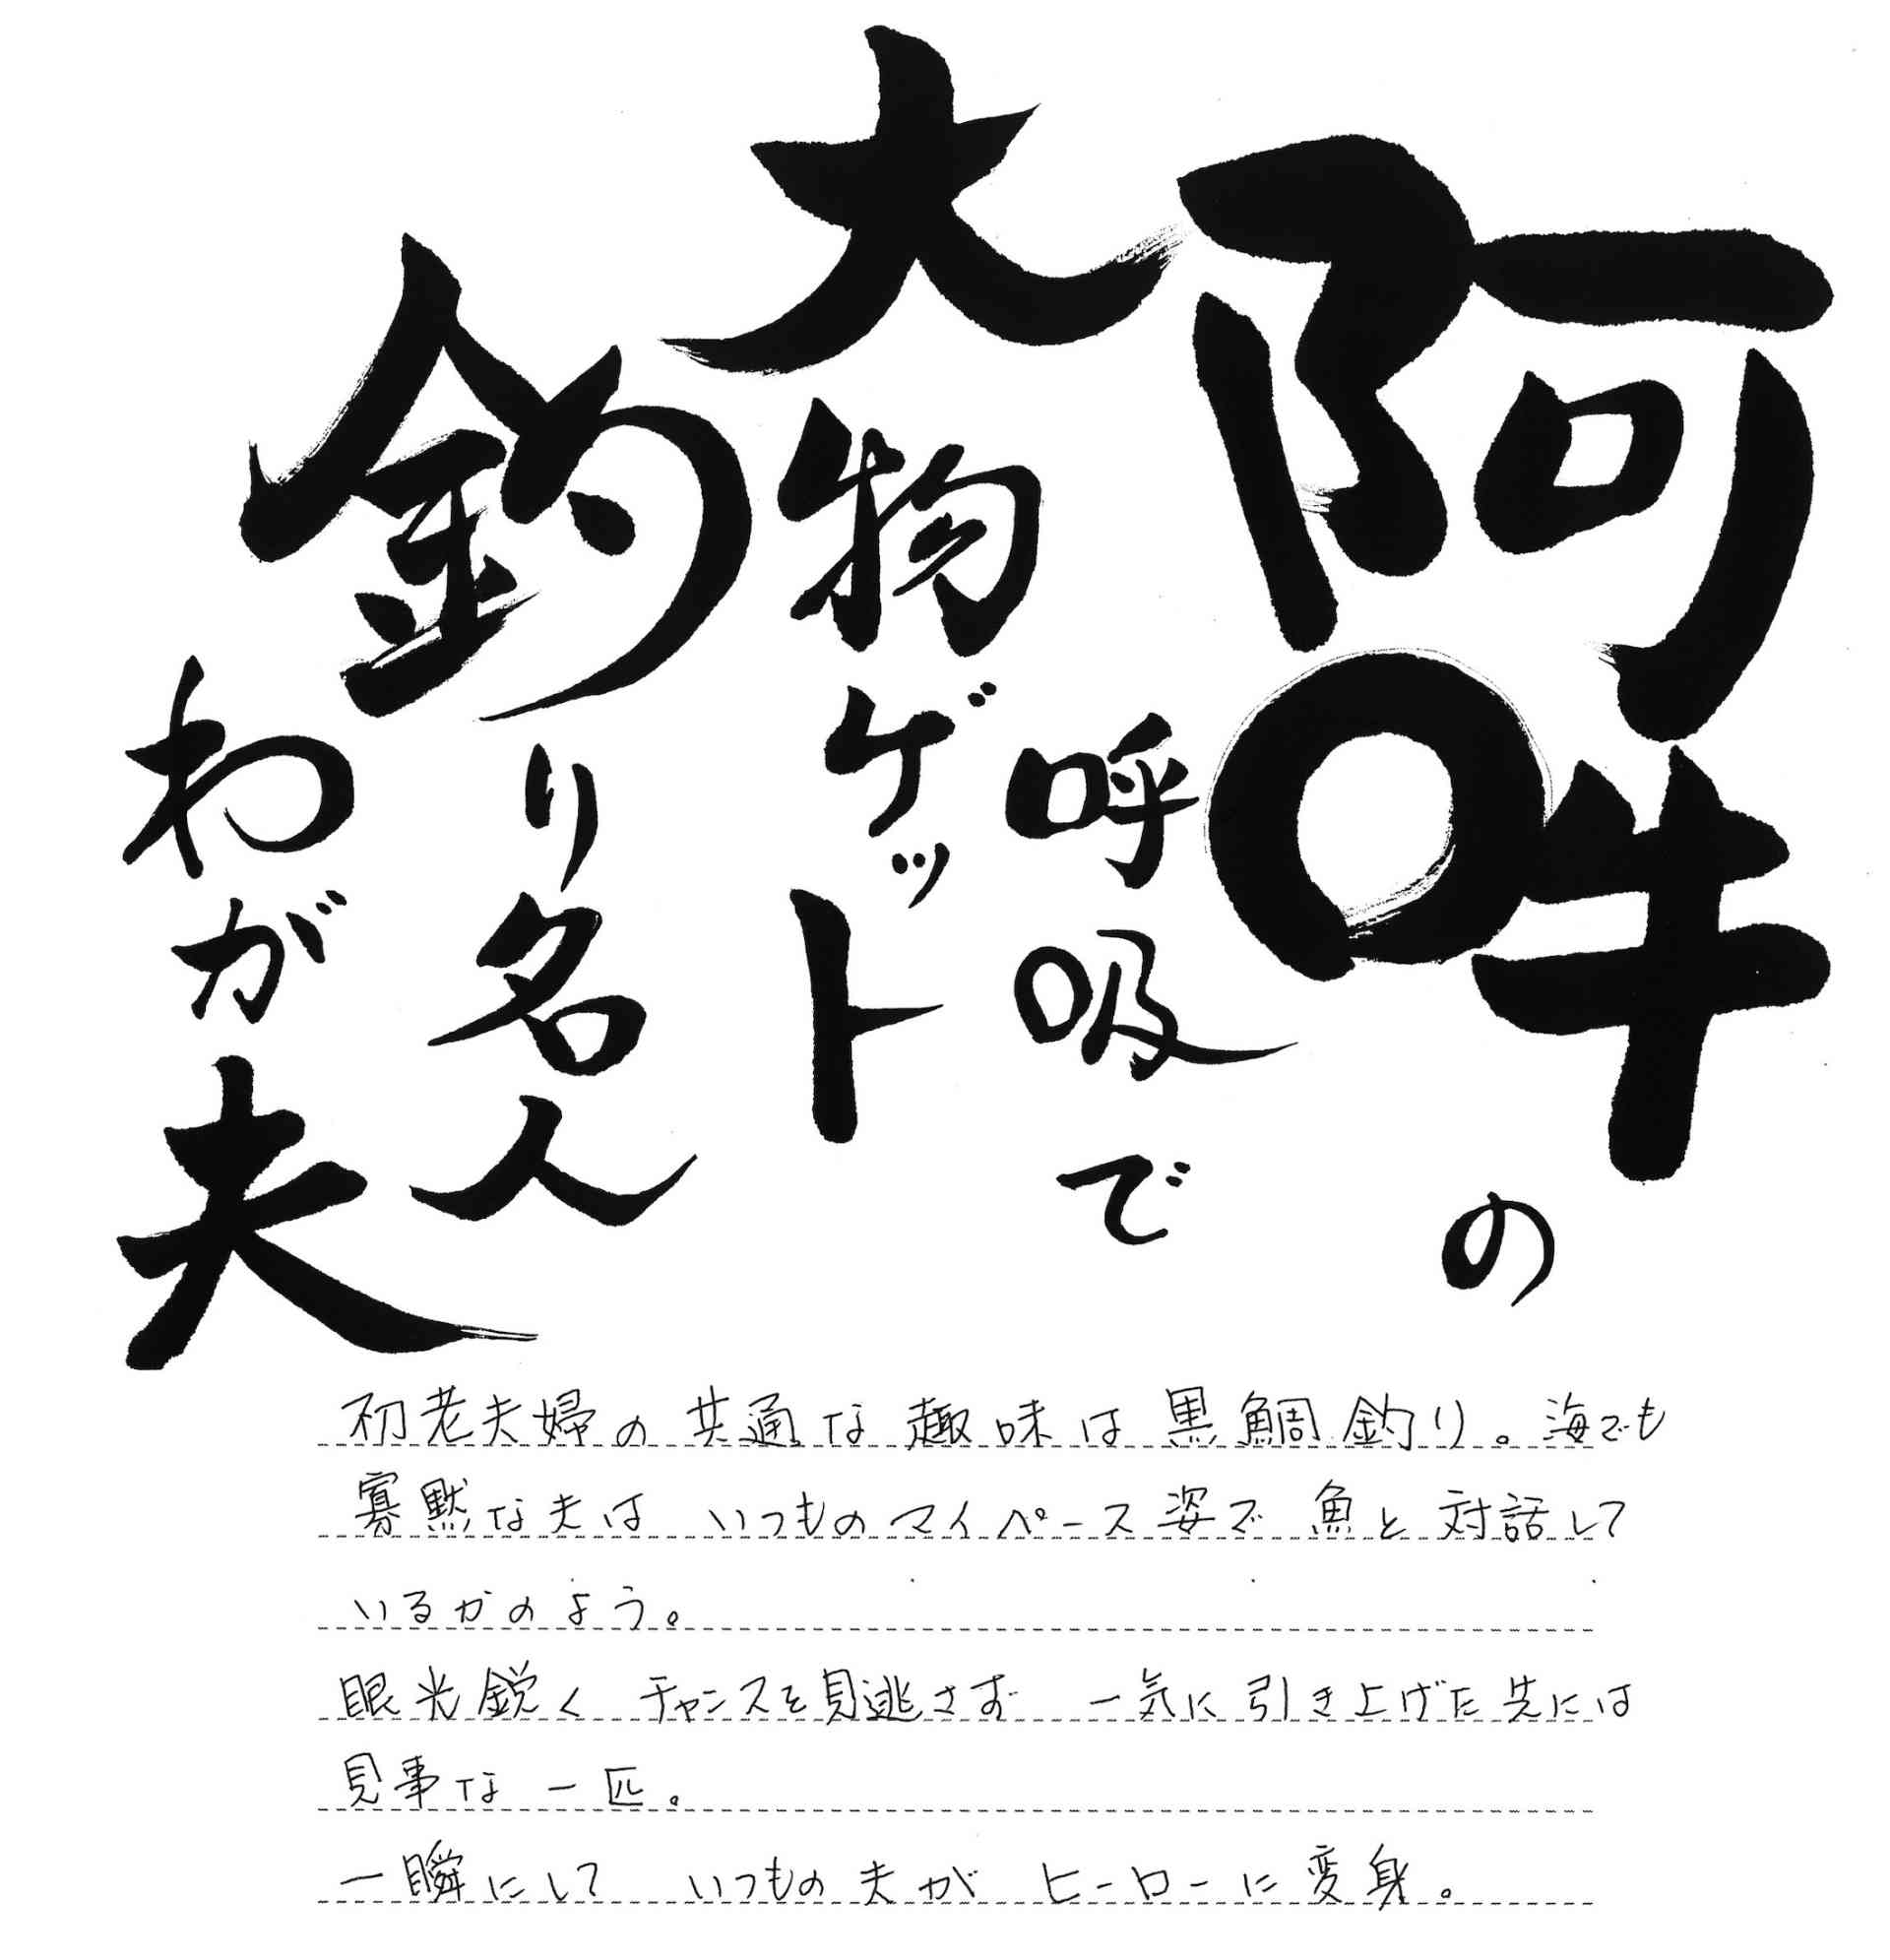 阿吽の
呼吸で
大物ゲット
釣り名人
わが夫
初老夫婦の共通な趣味は黒鯛釣り。海でも
寡黙な夫は いつものマイペース姿で 魚と対話して
いるかのよう。
眼光鋭く チャンスを見逃さず 一気に引き上げた先には
見事な一匹。
一瞬にして いつもの夫が ヒーローに変身。